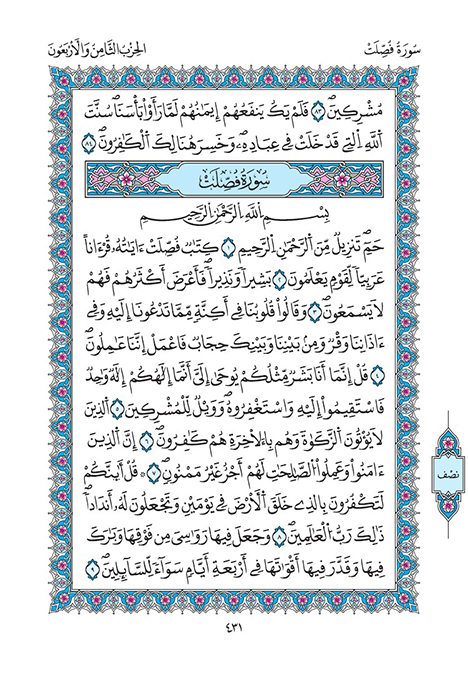 سُورَةُ فُصِّلَتْ
الحِزْبُ الثَّامِنُ وَالْأَرْبَعُونَ
مُشْرِكِينَۖ ٨٣ فَلَمْ يَكُ يَنفَعُهُمْ إِيمَٰنُهُمْ لَمَّا رَأَوْاْ بَأْسَنَاۖ سُنَّتَ
اَللَّهِ اِلتِے قَدْ خَلَتْ فِے عِبَادِهِۦۖ وَخَسِرَ هُنَالِكَ اَلْكَٰفِرُونَۖ ٨٤
سُورَةُ فُصِّلَتْ
بِسْمِ اللَّهِ الرَّحْمَٰنِ الرَّحِيمِ
حَمِٓۖ تَنزِيلٌ مِّنَ اَلرَّحْمَٰنِ اِلرَّحِيمِۖ ١ كِتَٰبٌ فُصِّلَتْ ءَايَٰتُهُۥ قُرْءَاناً
عَرَبِيّاً لِّقَوْمٍ يَعْلَمُونَۖ ٢ بَشِيراً وَنَذِيراًۖ فَأَعْرَضَ أَكْثَرُهُمْ فَهُمْ
لَا يَسْمَعُونَۖ ٣ وَقَالُواْ قُلُوبُنَا فِےٓ أَكِنَّةٍ مِّمَّا تَدْعُونَآ إِلَيْهِ وَفِےٓ
ءَاذَانِنَا وَقْرٌ وَمِنۢ بَيْنِنَا وَبَيْنِكَ حِجَابٌ فَاعْمَلِ اِنَّنَا عَٰمِلُونَۖ
٤ قُلِ اِنَّمَآ أَنَا بَشَرٌ مِّثْلُكُمْ يُوحَىٰٓ إِلَيَّ أَنَّمَآ إِلَٰهُكُمْ إِلَٰهٌ وَٰحِدٌ
فَاسْتَقِيمُوٓاْ إِلَيْهِ وَاسْتَغْفِرُوهُۖ وَوَيْلٌ لِّلْمُشْرِكِينَ ٥ اَلذِينَ
لَا يُوتُونَ اَلزَّكَوٰةَ وَهُم بِالَاخِرَةِ هُمْ كَٰفِرُونَۖ ٦ إِنَّ اَلذِينَ
ءَامَنُواْ وَعَمِلُواْ اُلصَّٰلِحَٰتِ لَهُمْ أَجْرٌ غَيْرُ مَمْنُونٍۖ ٧ قُلْ أَئِنَّكُمْ
لَتَكْفُرُونَ بِالذِے خَلَقَ اَلْأَرْضَ فِے يَوْمَيْنِ وَتَجْعَلُونَ لَهُۥٓ أَندَاداًۖ
ذَٰلِكَ رَبُّ اُلْعَٰلَمِينَۖ ٨ وَجَعَلَ فِيهَا رَوَٰسِيَ مِن فَوْقِهَا وَبَٰرَكَ
فِيهَا وَقَدَّرَ فِيهَآ أَقْوَٰتَهَا فِےٓ أَرْبَعَةِ أَيَّامٍ سَوَآءً لِّلسَّآئِلِينَۖ ٩
نصف
٤٣١